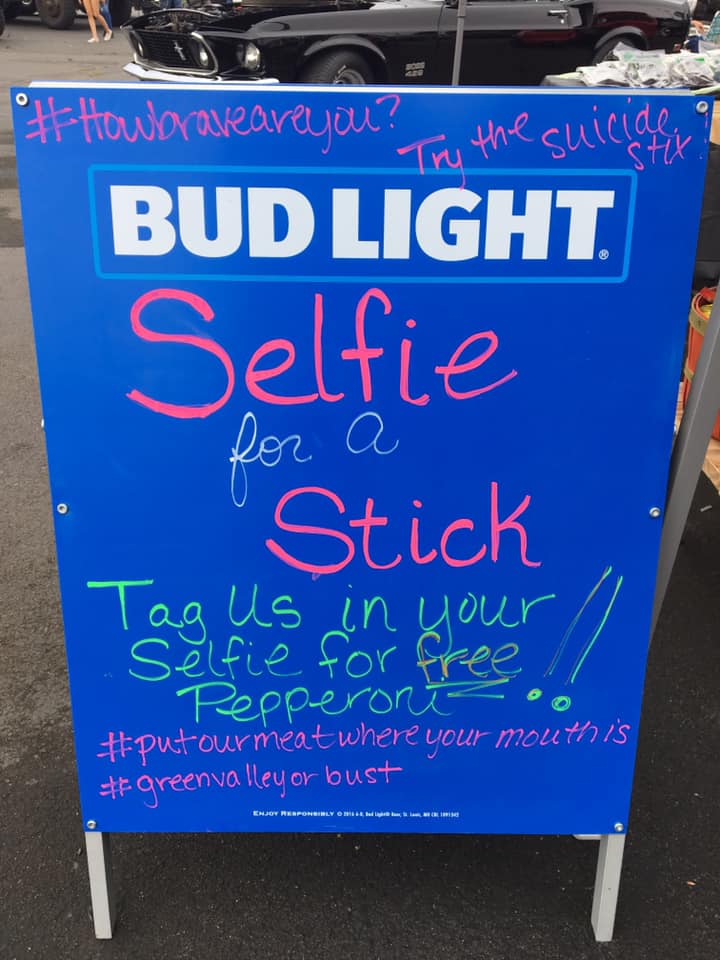 #Howbraveareyou?
Try the suicide stix
BUD LIGHT®
Selfie
for a
Stick
Tag Us in your
Selfie for free
Pepperoni !!
#putourmeatwhereyourmouthis
#greenvalleyorbust
ENJOY RESPONSIBLY © 2016 A-B, Bud Light® Beer, St. Louis, MO
BOSS
429